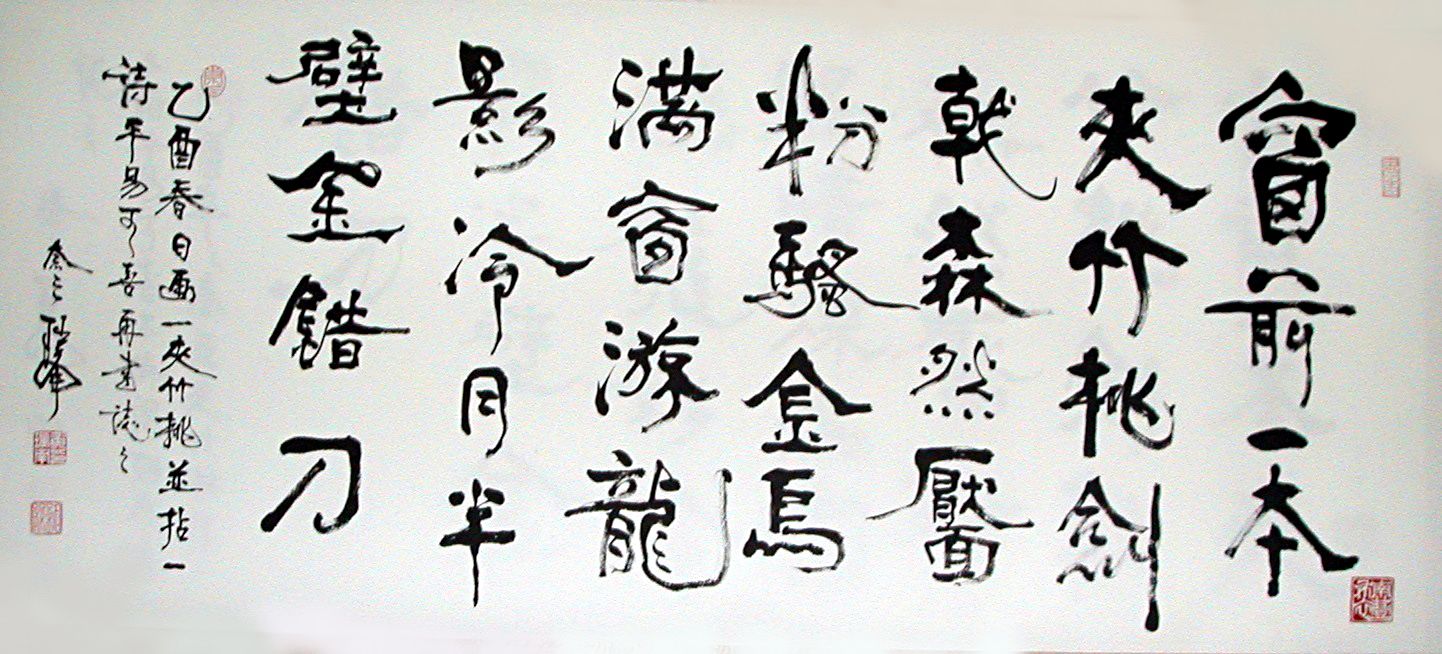 窗前一本
夾竹桃劍
戟森然靨
粉騷金烏
滿窗游龍
影冷月半
壁金錯刀
乙酉春日画一夾竹桃並拈一
詩平易可喜再書誌之